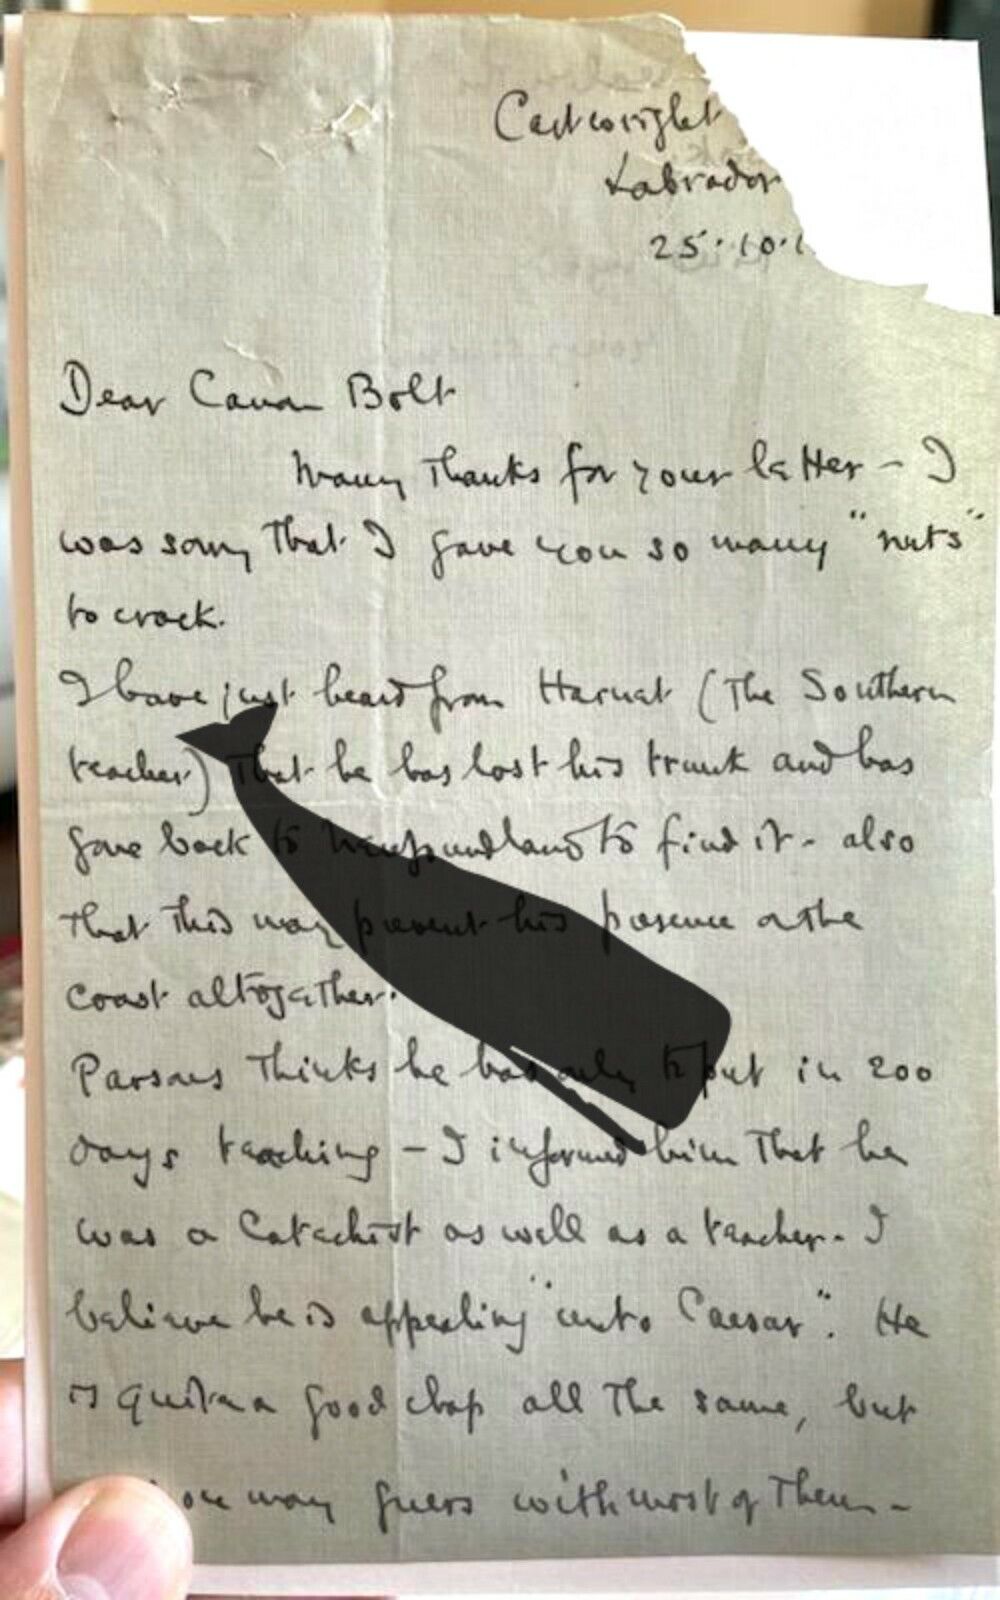 Cartwright
Labrador
25.10.1
Dear Canon Bolt
Many thanks for your letter - I
was sorry that I gave you so many "nuts"
to crack.
I have just heard from (The Southern
teacher) that he has lost his trunk and has
gone back to Newfoundland to find it - also
that this may prevent his presence on the
coast altogether.
Parsons thinks he has only to put in 200
days teaching - I informed him that he
was a Catechist as well as a teacher - I
believe he is appealing "unto Caesar". He
is quite a good chap all the same, but
you may guess with most of them -